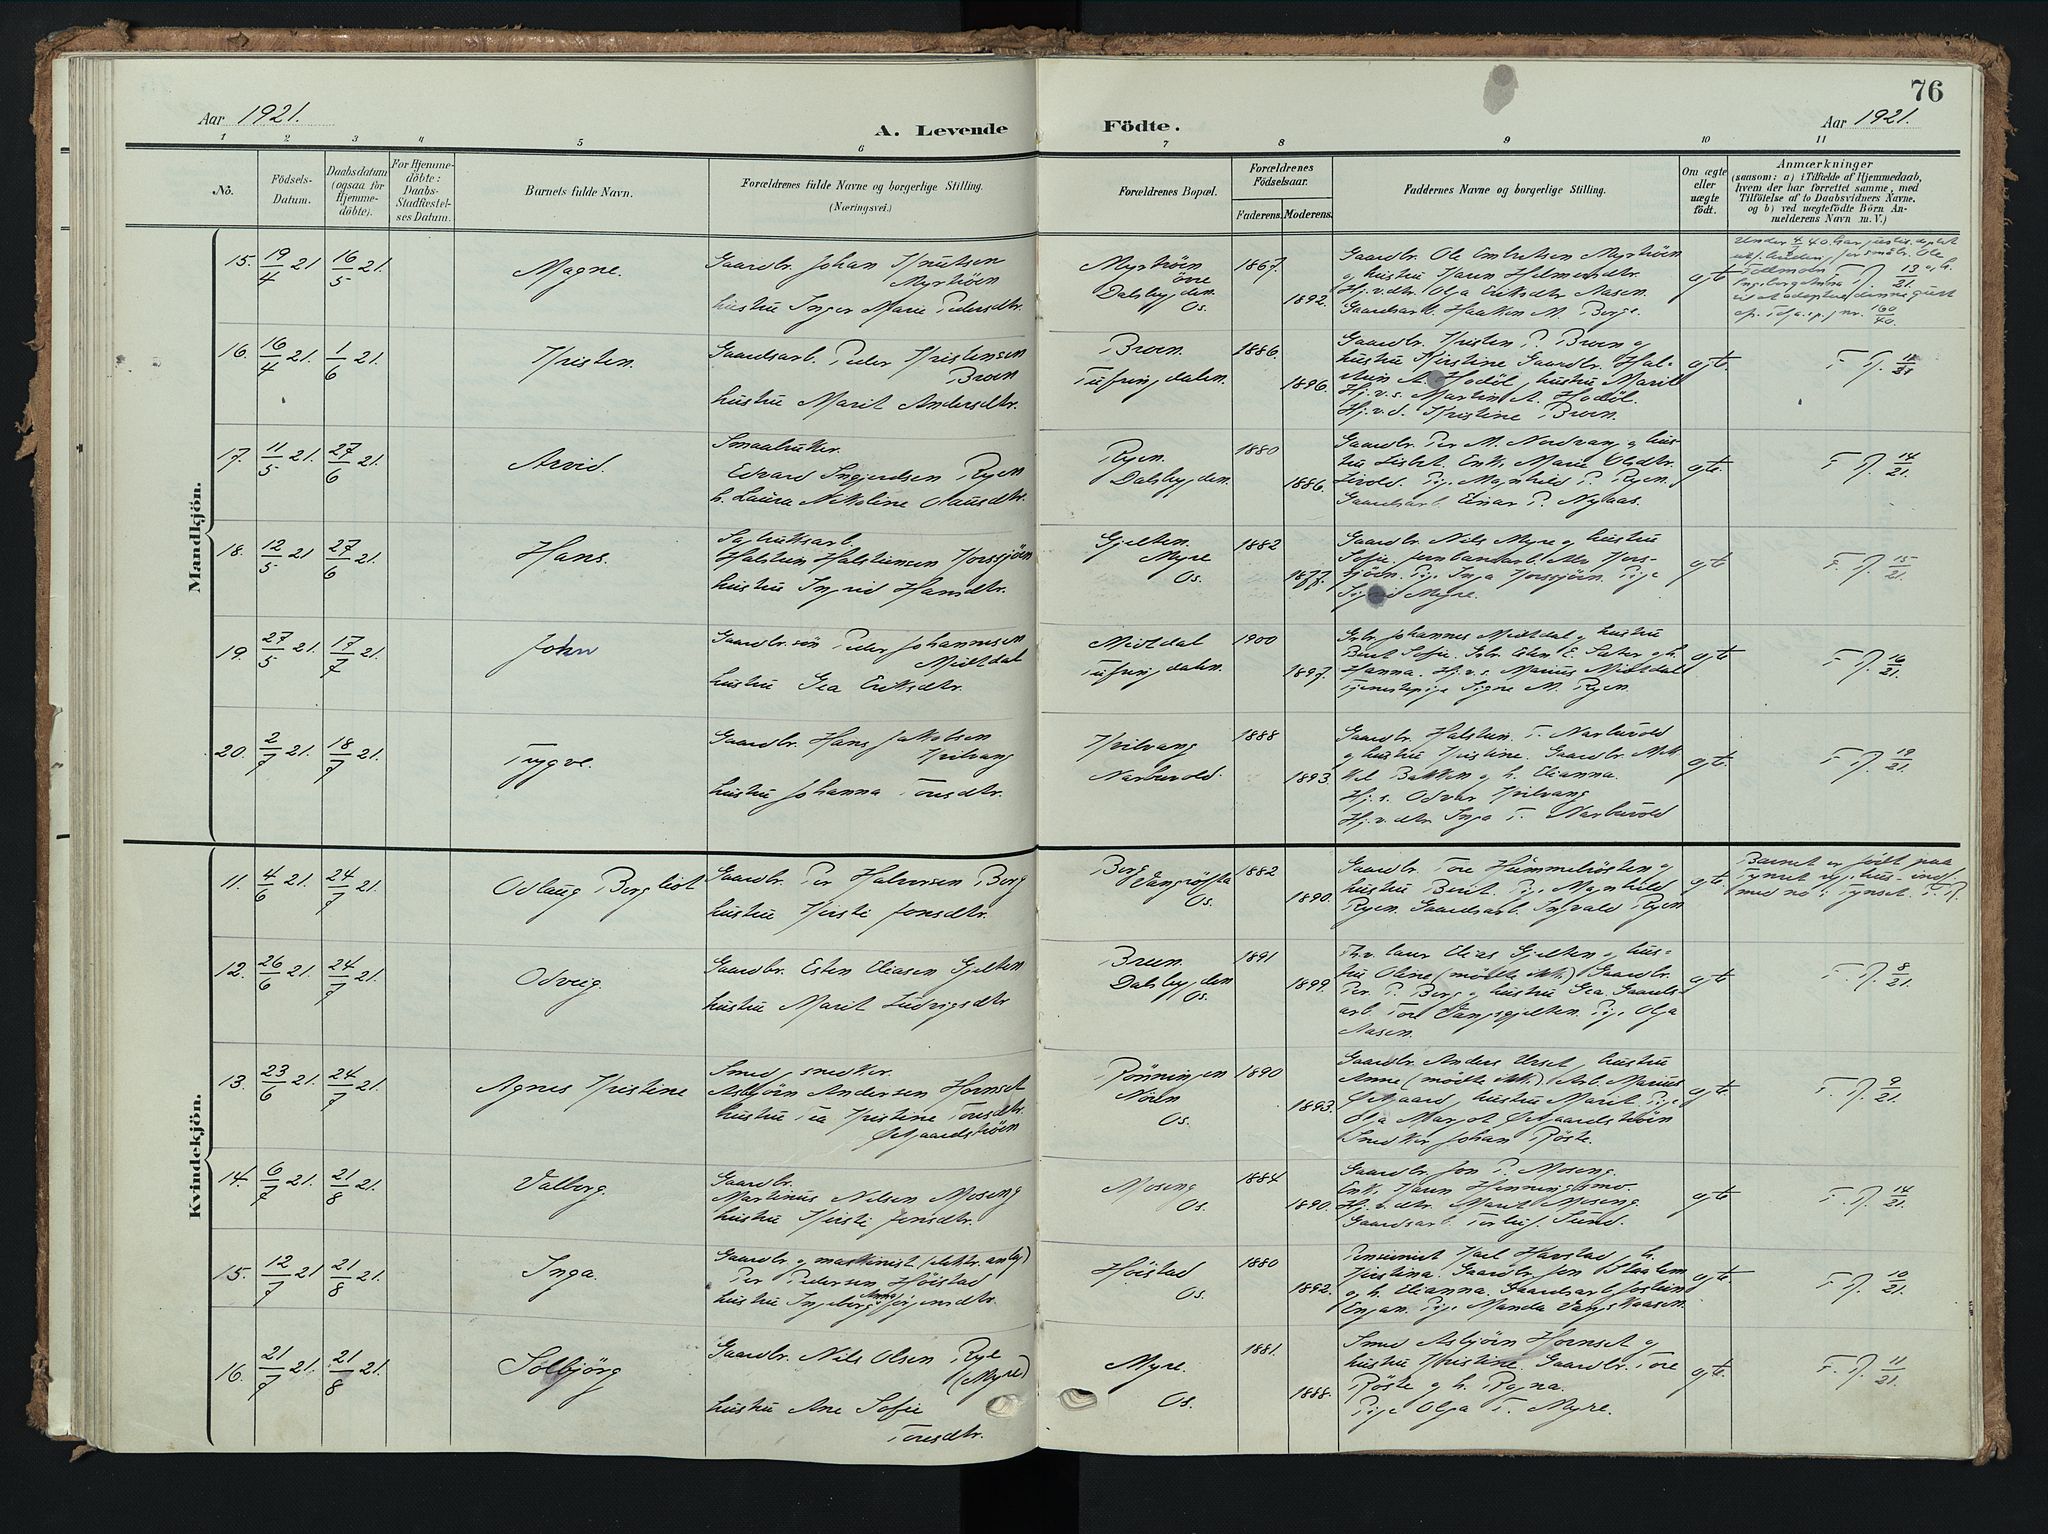 76
Aar 1921.
A. Levende Födte.
Aar 1921.
1 2 3 4 5 6 7 8 9 10 11
No.
Födsels-
Datum.
Daabsdatum
(ogsaa for
Hjemme-
döbte).
For Hjemme-
döbte:
Daabs-
Stadfæstel-
ses Datum.
Barnets fulde Navn.
Forældrenes fulde Navne og borgerlige Stilling.
(Næringsvei.)
Forældrenes Bopæl.
Forældrenes
Födselsaar.
Faderens. Moderens.
Faddernes Navne og borgerlige Stilling.
Om ægte
eller
uægte
födt.
Anmærkninger
(saasom: a) i Tilfælde af Hjemmedaab,
hvem der har forrettet samme, med
Tilföielse af to Daabsvidners Navne.
og b) ved uægtefödte Börn An-
melderens Navn m. V.)
Mandkjön.
15. 19/4 21 16/5 21. Magne.
Gaardbr. Johan Knutsen
Myrtröen
hustru Inger Marie Pedersdtr.
Myrtröen
övre
Dalsbygden
Os.
1867. 1892.
Gaardbr. Ole Embretsen Myrtröen
og hustru Karen
Hj.v.dtr. Olja Eriksdtr Aasen.
Gaardsarb. Haakon M. Berge.
egte
16. 16/4 21. 1/6 21. Kristen.
Gaardsarb. Peder Kristensen
Broen
hustru Marit Andersdtr.
Broen.
Tufsingdalen.
1886. 1896.
Gaardbr. Kristen P. Broen og
hustru Kirstine Gaardbr. Hal-
stein A. Hodöl, hustru Marit
Hj.v.s. Martin A. Hodöl.
Hj.v.d. Kristine Broen.
egte.
F. R. 11/21
17. 11/5 21. 27/6 21. Arvid.
Smaabruker.
Edvard Ingvaldsen Ryen
h. Laura Nikoline Olausdtr.
Ryen.
Dalsbygden.
1880 1886.
Gaardbr. Per M. Nordvang og hus-
tru Lisbet. Enke Marie Olsdtr.
Livold. Pige Magnhild P. Ryen.
Gaardsarb. Einar P. Nylaas.
egte.
F. R. 14/21.
18. 12/5 21 27/6 21. Hans.
Sagbruksarb.
Halstein Halsteinsen Korssjöen
hustru Ingrid Hansdtr.
Gjelten.
Myre
Os.
1882 1877.
Gaardbr. Nils Myre og hustru
Sofie, Jernbanearb. Kors-
sjöen. Pige Inga Korssjöen. Pige
Sigrid Myre.
egte
F. R. 15/21.
19. 27/5 21. 17/7 21. John
Gaardbr. sön Peder Johannessen
Midtdal
hustru Gea Eriksdtr.
Midtdal
Tufsingdalen.
1900 1897.
Gbr. Johannes Midtdal og hustru
Berit Sofie. Gbr. Esten E. Sæter og h.
Hanna. Hj.v.s. Marius Midtdal
Tjenestepige Signe M. Ryen.
egte.
F. R. 16/21.
20. 2/7 21. 18/7 21. Trygve.
Gaardbr. Hans Jakobsen
Kvilvang
hustru Johanna Toresdtr.
Kvilvang
Narbuvold.
1888 1893.
Gaardbr. Halstein T. Narbuvold
og hustru Kristine. Gaardbr. Mik-
kel Bakken og h. Elianna.
Hj.s. Odvar Kvilvang
Hj.v.dtr. Inga T. Narbuvold
egte.
F. R. 19/21.
Kvindekjön.
11. 4/6 21. 24/7 21. Odlaug Bergliot
Gaardbr. Per Halvorsen Berg
hustru Kirsti Jonsdtr.
Berg
Vangröfta
Os.
1882 1890.
Gaardbr. Tore Hummelvösten og
hustru Berit. Pige Magnhild
Ryen. Gaardsarb. Ingvald Ryen
egte.
Barnet er födt paa
Tynset
med no i Tynset. F. R.
12. 26/6 21. 24/7 21. Odveig.
Gaardbr. Esten Eliasen Gjelten
hustru Marit Ludvigsdtr
Breen.
Dalsbygden
Os.
1891 1899.
Elias Gjelten og hus-
tru Oline (mödte ikke) Gaardbr.
Per P. Berg og hustru Gea. Gaards-
arb. Tore Vangsgjelten. Pige Olja
Aasen.
egte.
F. R. 8/21.
13. 23/6 21. 24/7 21. Agnes Kristine
Smed, snedker.
Asbjörn Andersen Hornset
hustru Kristine Toresdtr.
Örgaardströen
Rönningen
Nören
Os.
1890 1893.
Gaardbr. Anders Urset, hustru
Anne (mödte ikke). Arb. Marius
Örgaard, hustru Marit. Pige
Olja Margot Örgaardströen
Snedker Johan Röste.
egte.
F. R. 9/21.
14. 6/7 21. 21/8 21. Valborg.
Gaardbr.
Martinus Nilsen Moseng
hustru Kirsti Jonsdtr.
Moseng
Os.
1884 1890.
Gaardbr. Jon P. Moseng.
Enke Karen Henningsmo.
Hj.v.dtr. Marit Moseng.
Gaardsarb. Torleif Sund.
egte
F. R. 14/21.
15. 12/7 21 21/8 21. Inga.
Gaardbr. og maskinist (elektr. anlæg)
Per Pedersen Höistad
hustru Ingeborg Anna Jörgensdtr.
Höistad
Os.
1880 1892.
Pensionist Karl Harstad h.
Kristina. Gaardbr. Jon
og h. Elianna. Gaardsarb. Jostein
Engan. Pige Manda Vangskaasen.
egte.
F. R. 10/21.
16. 21/7 21. 21/8 21. Solbjörg
Gaardbr. Nils Olsen Rye
(Myre)
hustru Ane Sofie
Toresdtr.
Myre.
Os.
1881. 1888.
Smed Asbjörn Hornset og
hustru Kristine. Gaardbr. Tore
Röste og h. Ragna.
Pige Olga T. Myre.
egte.
F. R. 11/21.